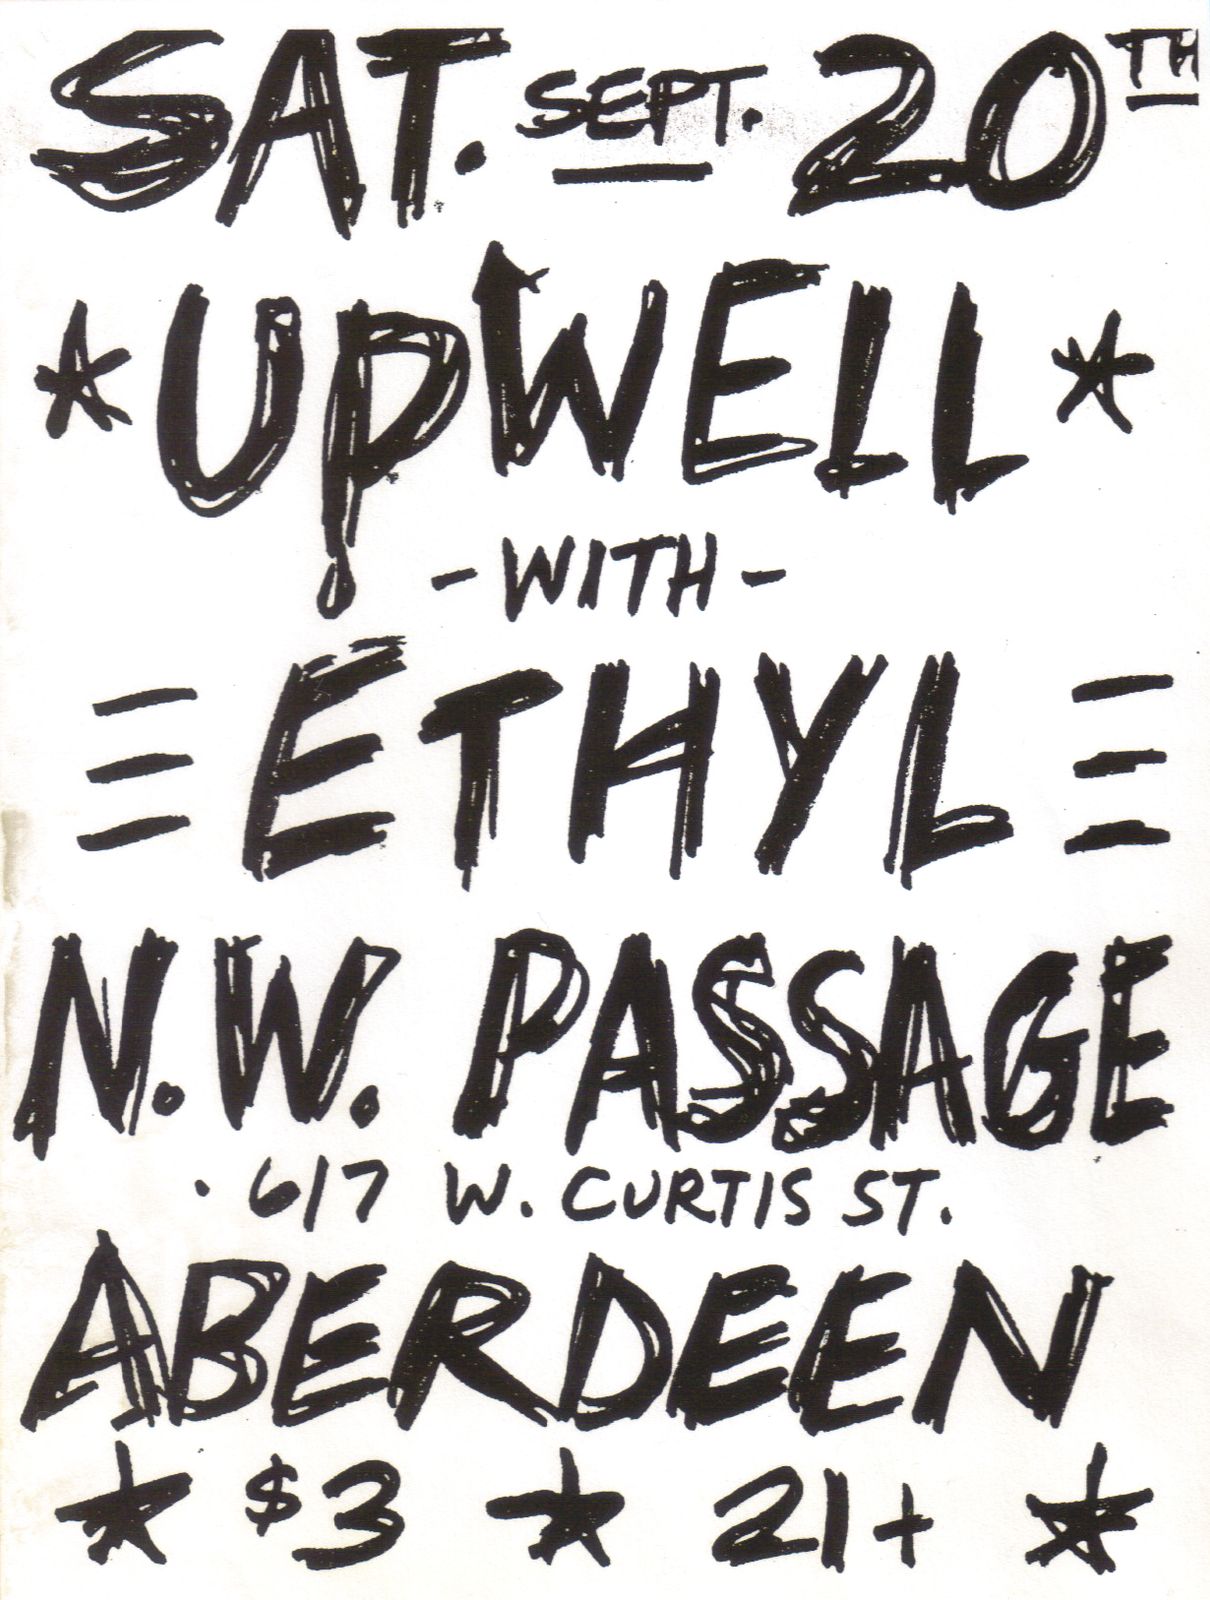 SAT. SEPT. 20TH
*UPWELL*
-WITH-
ETHYL
N.W. PASSAGE
617 W. CURTIS ST.
ABERDEEN
★ $3 ★ 21+ ★